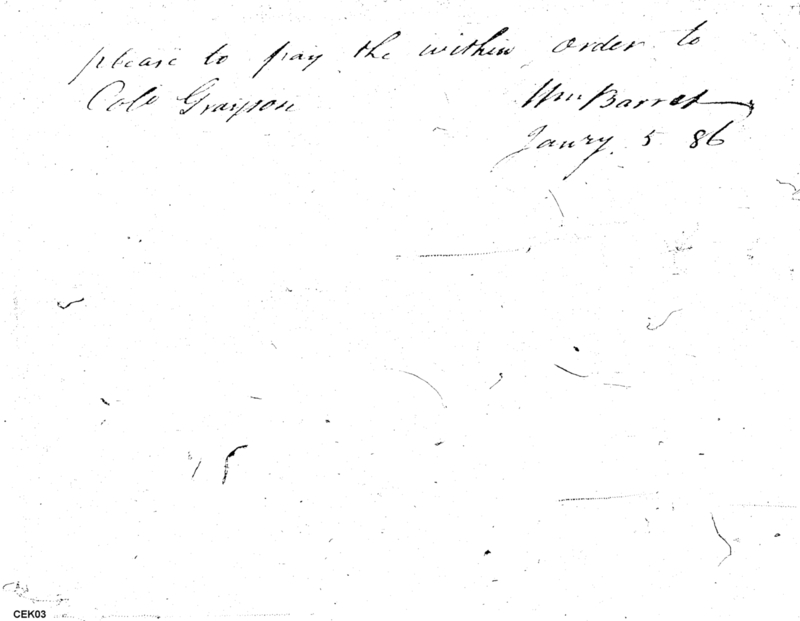 please to pay the within order to
Colo Grayson
Wm Barret
Janry. 5 86
CEK03